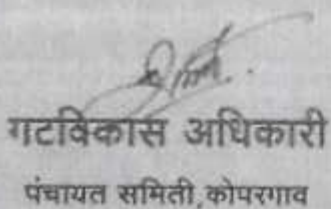 गटविकास अधिकारी
पंचायत समिती,कोपरगाव